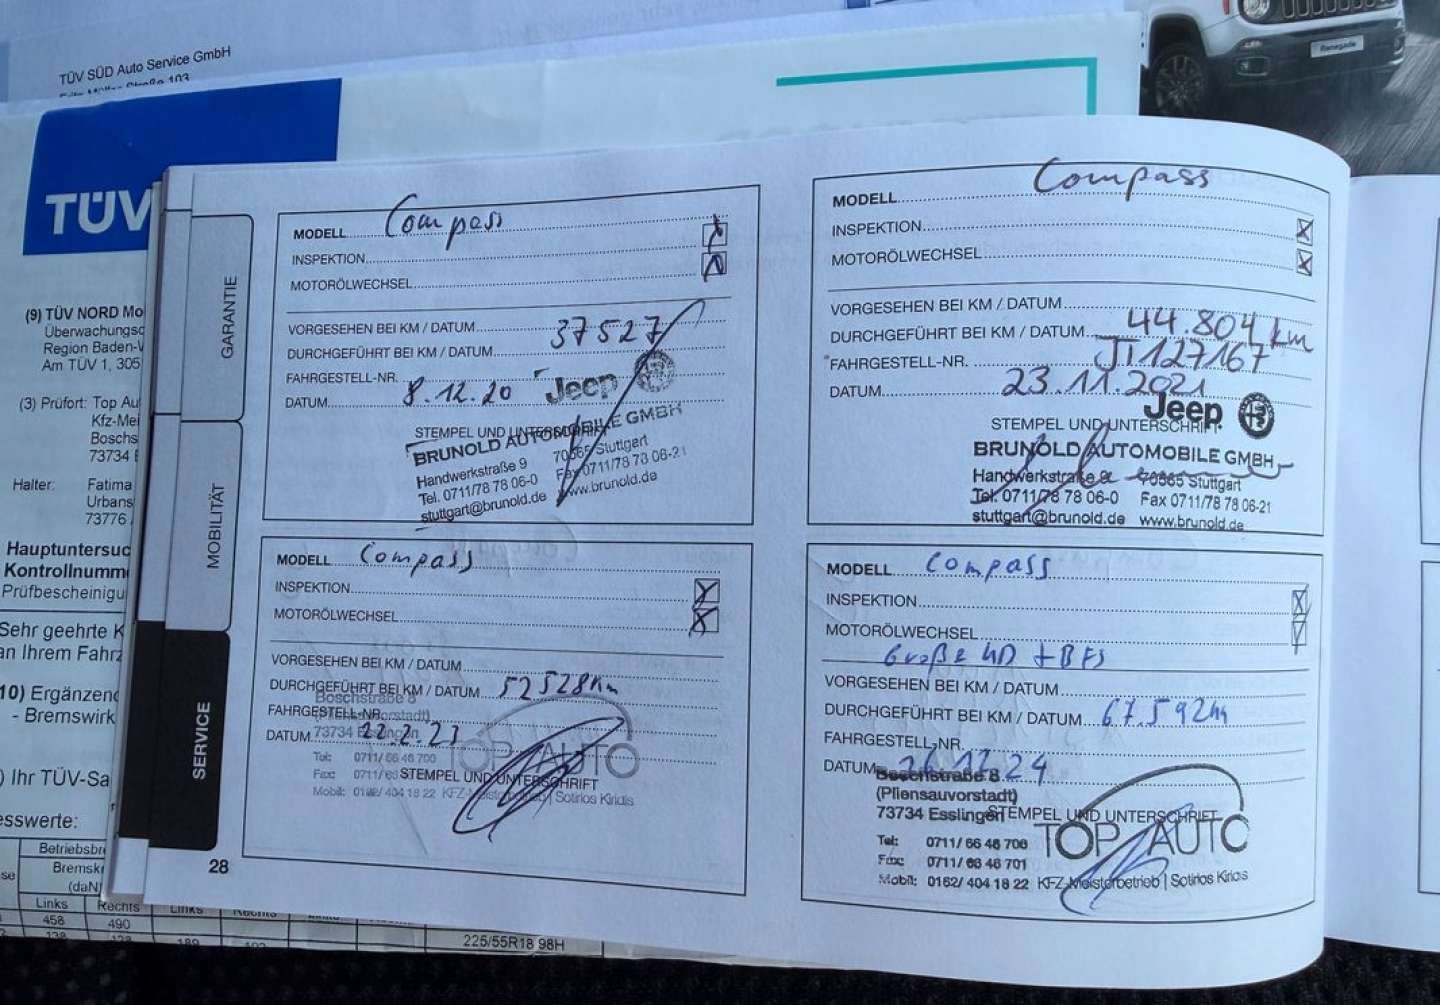 TÜV SÜD Auto Service GmbH
Renegade
TÜV
(9) TÜV NORD Mo
Überwachungsc
Region Baden-
Am TÜV 1, 305
(3) Prüfort: Top Au
Kfz-Mei
Bosch
73734
Halter: Fatima
Urbans
73776
Hauptuntersuc
Kontrollnumm
Prüfbescheinigu
Sehr geehrte K
an Ihrem Fahrz
10) Ergänzend
- Bremswirk
) Ihr TÜV-Sa
esswerte:
Betriebsbr
Bremskr
(daN)
Links Rechts Links Rechts
458 490
225/55R18 98H
GARANTIE
MOBILITÄT
SERVICE
28
MODELL Compass
INSPEKTION
MOTORÖLWECHSEL
VORGESEHEN BEI KM / DATUM
DURCHGEFÜHRT BEI KM / DATUM 37527
FAHRGESTELL-NR.
DATUM 8.12.20
Jeep
STEMPEL UND UNTERSCHRIFT
BRUNOLD AUTOMOBILE GMBH
Handwerkstraße 9 70565 Stuttgart
Tel. 0711/78 78 06-0 Fax 0711/78 78 06-21
stuttgart@brunold.de www.brunold.de
MODELL Compass
INSPEKTION
MOTORÖLWECHSEL
VORGESEHEN BEI KM / DATUM
DURCHGEFÜHRT BEI KM / DATUM 44.804 km
FAHRGESTELL-NR. JT127167
DATUM 23.11.2021
Jeep
STEMPEL UND UNTERSCHRIFT
BRUNOLD AUTOMOBILE GMBH
Handwerkstraße 9 70565 Stuttgart
Tel. 0711/78 78 06-0 Fax 0711/78 78 06-21
stuttgart@brunold.de www.brunold.de
MODELL Compass
INSPEKTION
MOTORÖLWECHSEL
VORGESEHEN BEI KM / DATUM
DURCHGEFÜHRT BEI KM / DATUM 52528km
Boschstraße 8
FAHRGESTELL-NR.
(Pliensauvorstadt)
DATUM 22.2.23
73734 Esslingen
TOP AUTO
Tel: 0711/ 66 46 700
Fax: 0711/ 66
STEMPEL UND UNTERSCHRIFT
Mobil: 0162/ 404 18 22 KFZ-Meisterbetrieb | Sotirios Kiridis
MODELL Compass
INSPEKTION
MOTORÖLWECHSEL
Große HD + BFS
VORGESEHEN BEI KM / DATUM
DURCHGEFÜHRT BEI KM / DATUM 67.592km
FAHRGESTELL-NR.
DATUM 24
Boschstraße 8
(Pliensauvorstadt)
73734 Esslingen
STEMPEL UND UNTERSCHRIFT
TOP AUTO
Tel: 0711/ 66 46 700
Fax: 0711/ 66 46 701
Mobil: 0162/ 404 18 22 KFZ-Meisterbetrieb | Sotirios Kiridis